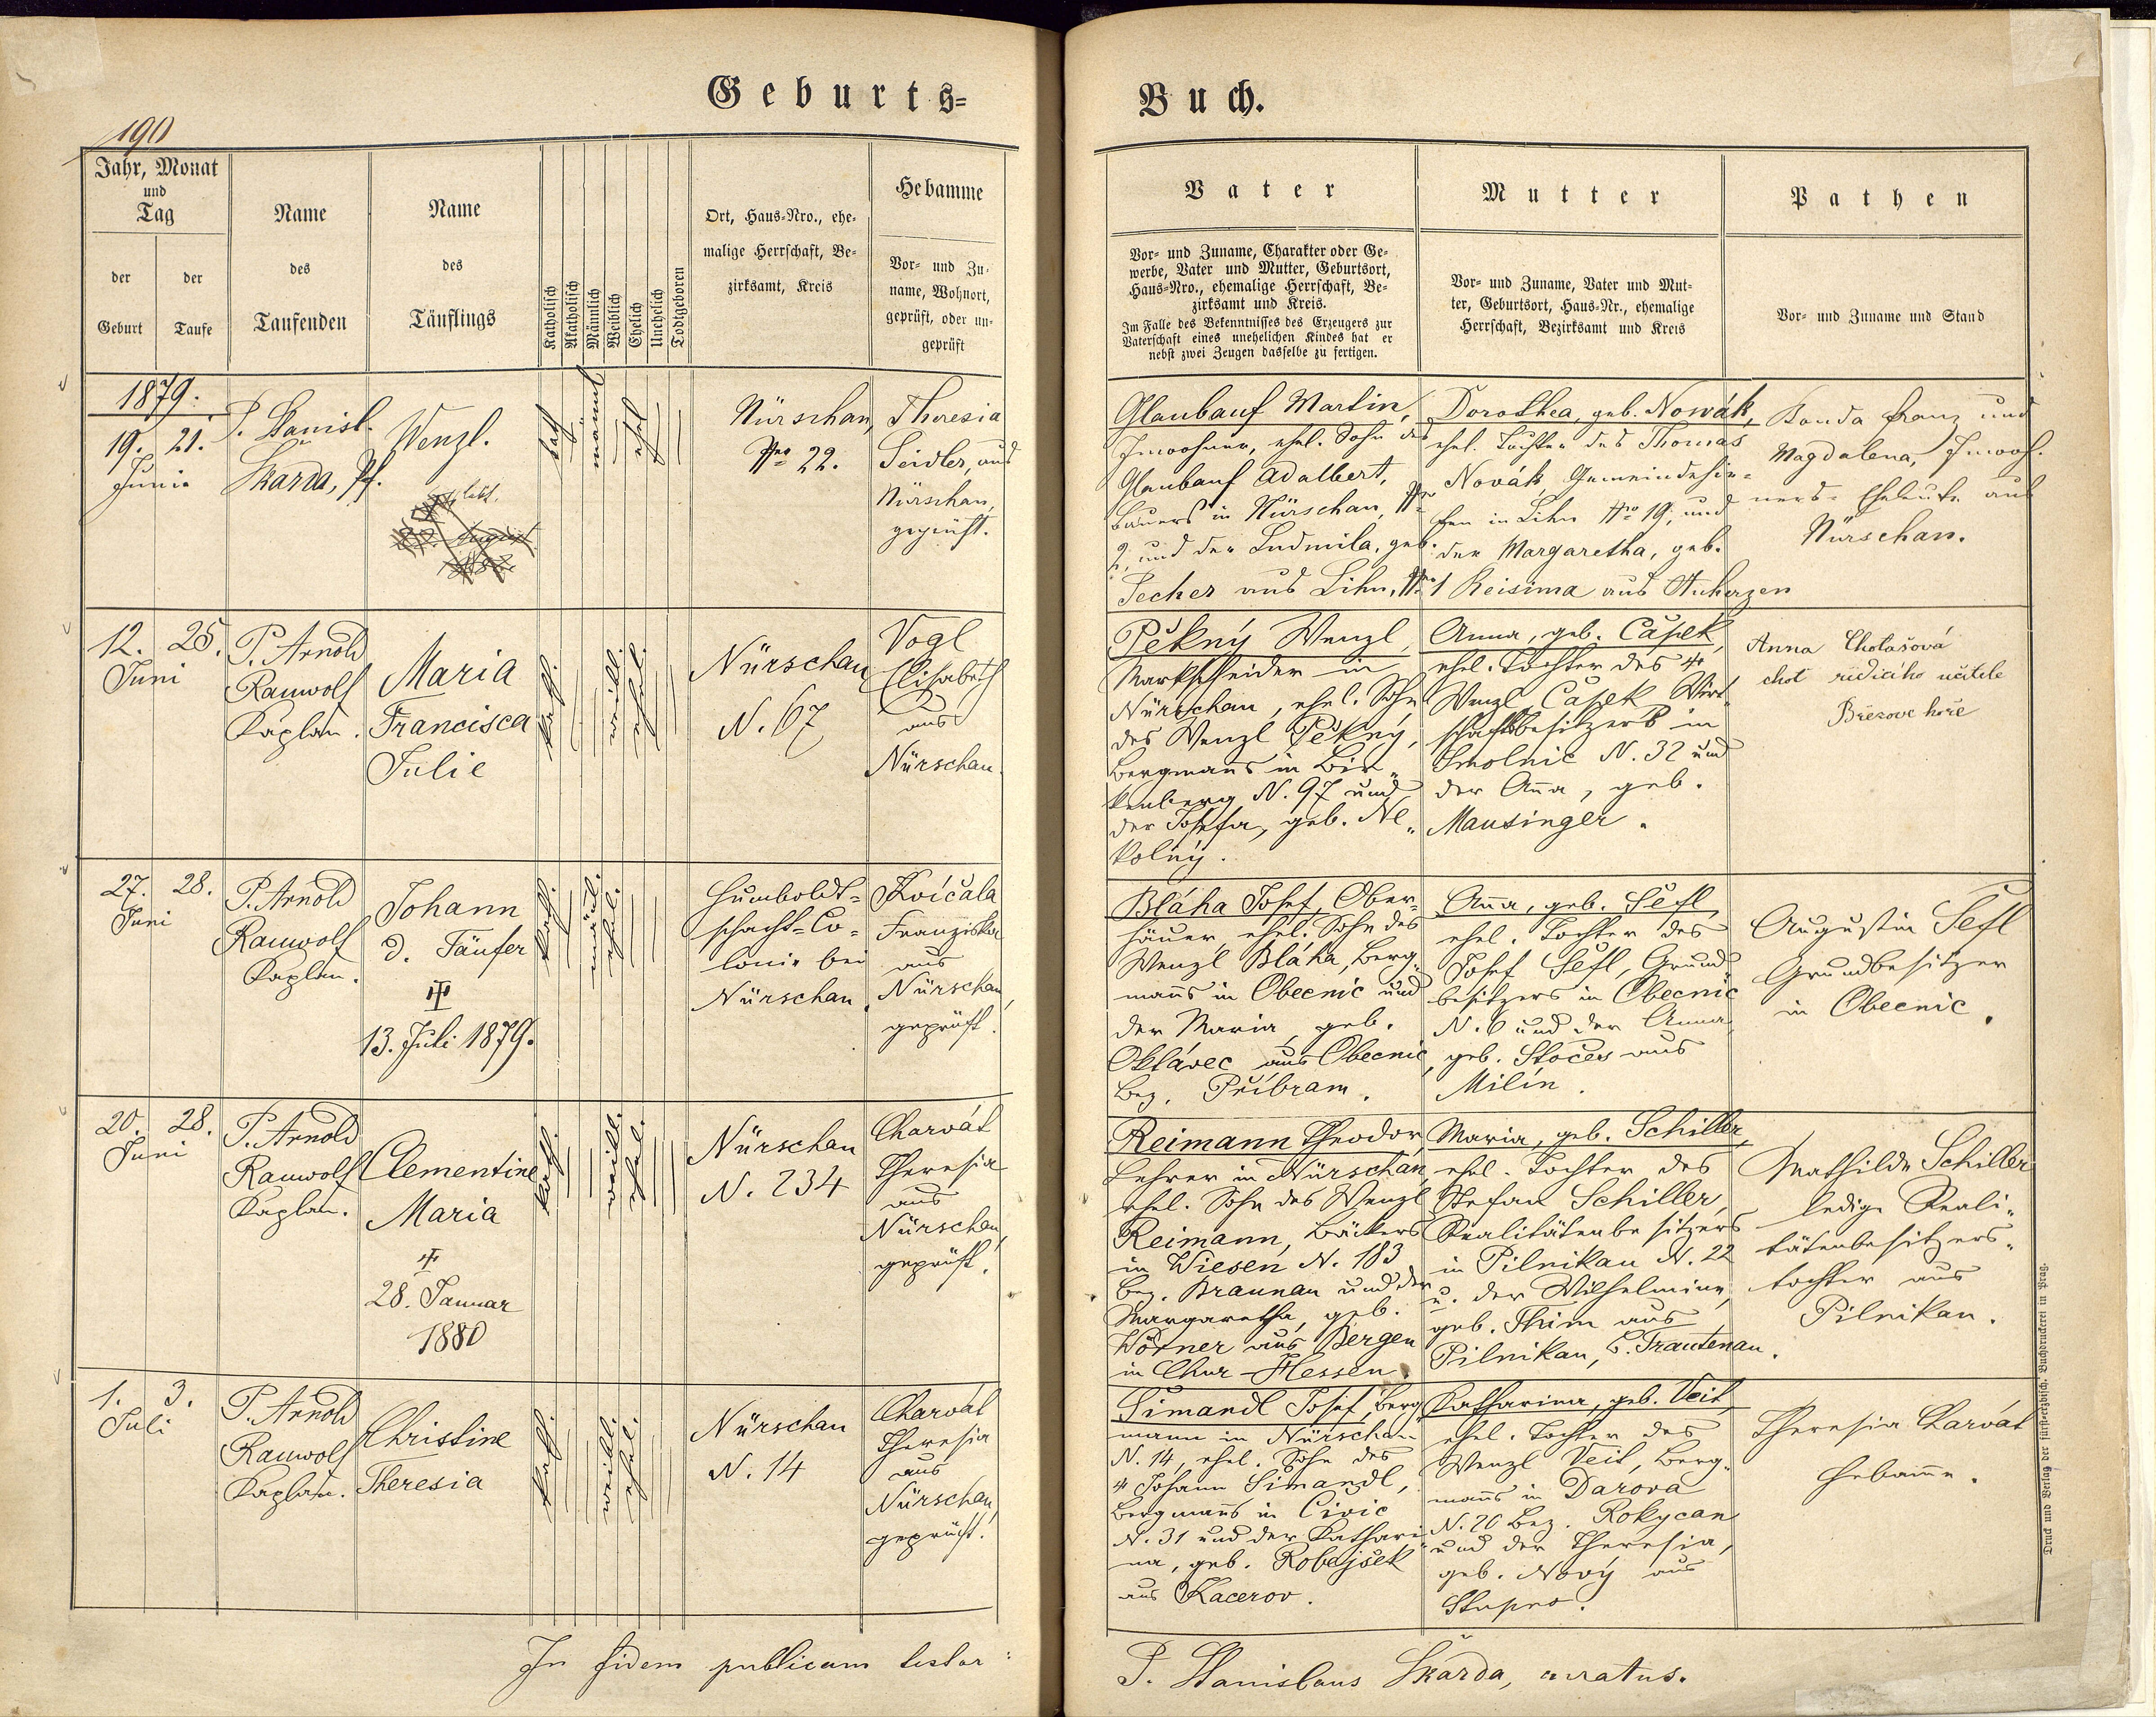 Geburts=
Buch.
190
Jahr, Monat
und
Tag
der
Geburt
der
Taufe
Name
des
Taufenden
Name
des
Täuflings
Katholisch
Akatholisch
Männlich
Weiblich
Ehelich
Unehelich
Todtgeboren
Ort, Haus=Nro., ehe=
malige Herrschaft, Be=
zirksamt, Kreis
Hebamme
Vor= und Zu=
name, Wohnort,
geprüft, oder un=
geprüft
Vater
Vor= und Zuname, Charakter oder Ge=
werbe, Vater und Mutter, Geburtsort,
Haus=Nro., ehemalige Herrschaft, Be=
zirksamt und Kreis.
Im Falle des Bekenntnisses des Erzeugers zur
Vaterschaft eines unehelichen Kindes hat er
nebst zwei Zeugen dasselbe zu fertigen.
Mutter
Vor= und Zuname, Vater und Mut=
ter, Geburtsort, Haus=Nr., ehemalige
Herrschaft, Bezirksamt und Kreis
Pathen
Vor= und Zuname und Stand
1879.
19. 21.
Juni
P. Stanisl.
Škarda, Pf.
Wenzl.
kath
männl
ehel
Nürschan,
Nro 22.
Theresia
Seidler, aus
Nürschan,
geprüft.
Glaubauf Martin,
Inwohner, ehel. Sohn des
Glaubauf Adalbert,
Bauers in Nürschan, Nro
2, und der Ludmila, geb.
Pecher aus Lihn, Nro 1
Dorothea, geb. Nowák,
ehel. Tochter des Thomas
Novák, Gemeindehir=
ten in Lihn Nro 19, und
der Margaretha, geb.
Reisima aus Auherzen
Banda Franz und
Magdalena, Inwoh=
ners= Eheleute aus
Nürschan.
12. 25.
Juni
P. Arnold
Rauwolf
Kaplan.
Maria
Francisca
Julie
kath.
weibl.
ehel.
Nürschan
N. 67
Vogl
Elisabeth
aus
Nürschan.
Pěkný Wenzl,
Markscheider in
Nürschan, ehel. Sohn
des Wenzl Pěkný,
Bergmanns in Bir=
kenberg N. 97 und
der Josefa, geb. Ne=
kolný.
Anna, geb. Čapek,
ehel. Tochter des †
Wenzl Čapek, Wirt=
schaftsbesitzers in
Smolnic N. 32 und
der Anna, geb.
Mansinger.
Anna Chotašová
choť řídícího učitele
Březové hoře
27. 28.
Juni
P. Arnold
Rauwolf
Kaplan.
Johann
d. Täufer
†
13. Juli 1879.
kath.
männl.
ehel.
Humboldt=
schacht=Co=
lonie bei
Nürschan.
Kvíčala
Franziska
aus
Nürschan,
geprüft.
Bláha Josef, Ober=
häuer, ehel. Sohn des
Wenzl Bláha, Berg=
manns in Obecnic und
der Maria, geb.
Oktávec aus Obecnic,
Bez. Příbram.
Anna, geb. Šefl,
ehel. Tochter des
Josef Šefl, Grund=
besitzers in Obecnic
N. 6 und der Anna
geb. Stočes aus
Milín.
Augustin Šefl
Grundbesitzer
in Obecnic.
20. 28.
Juni
P. Arnold
Rauwolf
Kaplan.
Clementine
Maria
†
28. Januar
1880
kath.
weibl.
ehel.
Nürschan
N. 234
Charvát
Theresia
aus
Nürschan,
geprüft.
Reimann Theodor,
Lehrer in Nürschan,
ehel. Sohn des Wenzl
Reimann, Bäckers
in Wiesen N. 183
Bez. Braunau und der
Margaretha, geb.
Wörner aus Bergen
in Chur-Hessen.
Maria, geb. Schiller,
ehel. Tochter des
Stefan Schiller,
Realitätenbesitzers
in Pilnikau N. 22
u. der Wilhelmine,
geb. Thim aus
Pilnikau, B. Trautenau.
Mathilde Schiller
ledige Reali=
tätenbesitzers=
tochter aus
Pilnikau.
1. 3.
Juli
P. Arnold
Rauwolf
Kaplan.
Christine
Theresia
kath.
weibl.
ehel.
Nürschan
N. 14
Charvát
Theresia
aus
Nürschan,
geprüft.
Šimandl Josef, Berg=
mann in Nürschan
N. 14, ehel. Sohn des
† Johann Šimandl,
Bergmanns in Civic
N. 31 und der Kathari=
na, geb. Robejšek
aus Kacerov.
Katharina, geb. Veit,
ehel. Tochter des
Wenzl Veit, Berg=
manns in Darova
N. 20 Bez. Rokycan
und der Theresia,
geb. Nový aus
Stupno.
Theresia Charvát
Hebamme.
In fidem publicam testor:
P. Stanislaus Škarda, curatus.
Druck und Verlag der fürsterzbisch. Buchdruckerei in Prag.